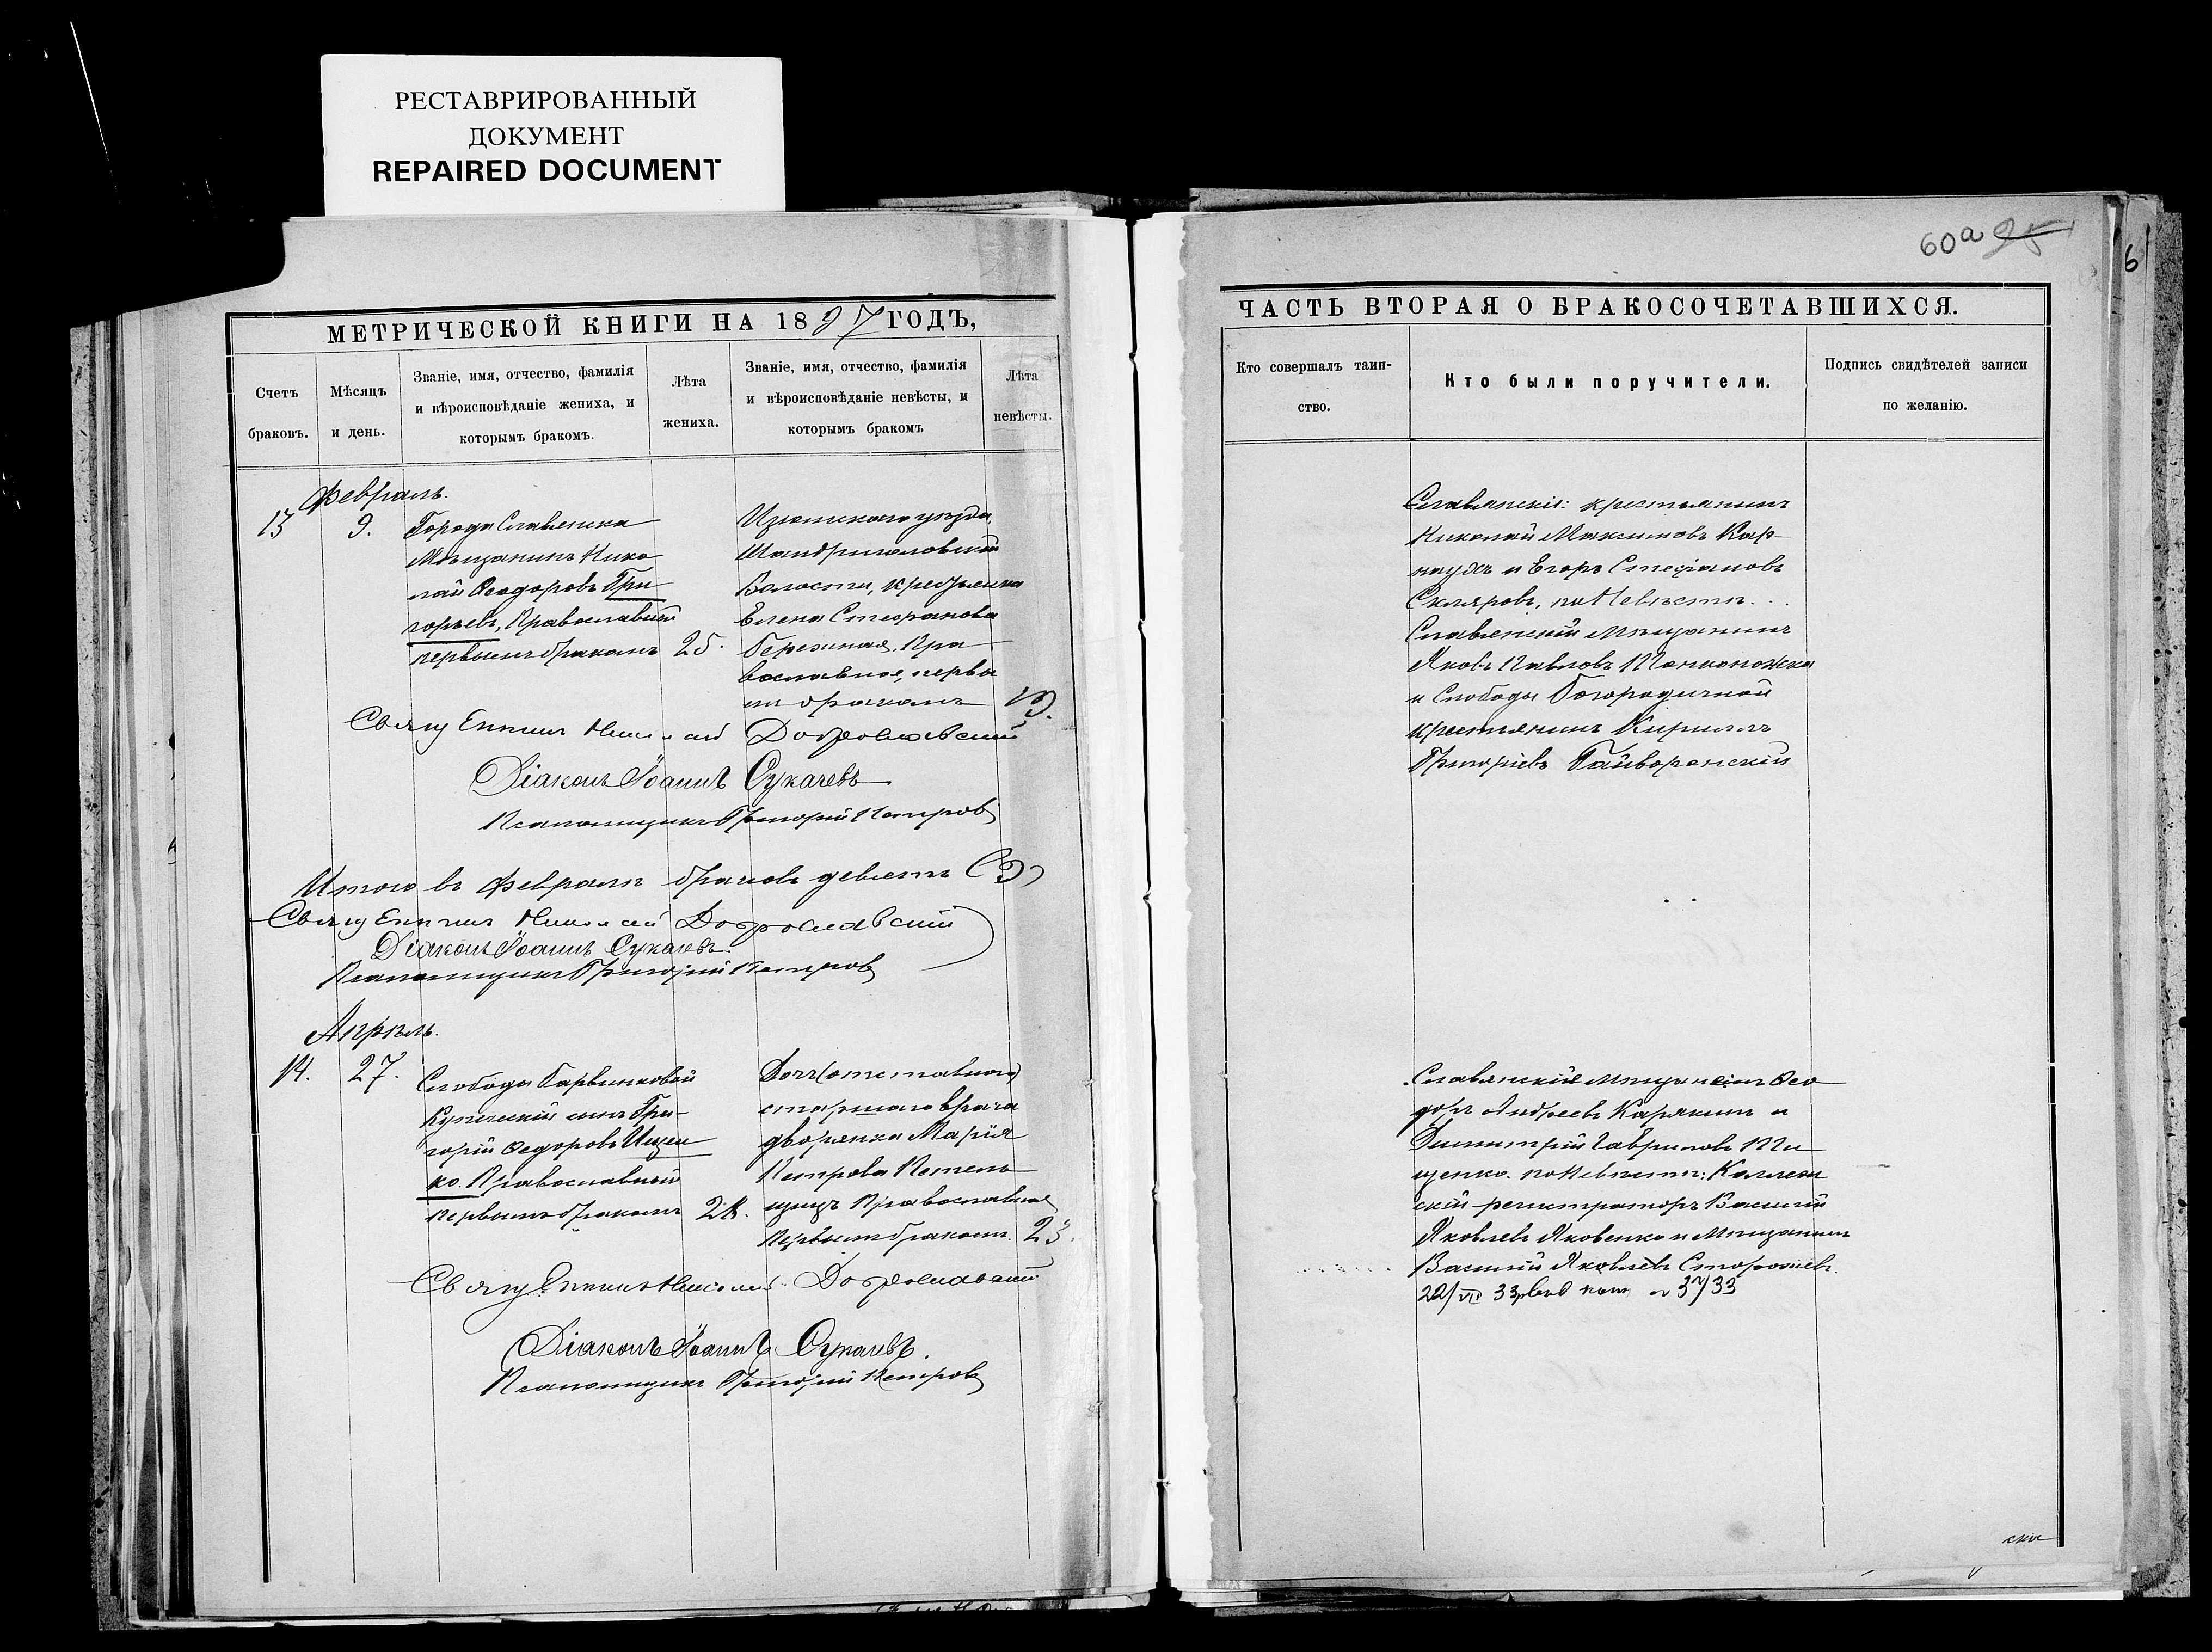 РЕСТАВРИРОВАННЫЙ
ДОКУМЕНТ
REPAIRED DOCUMENT
МЕТРИЧЕСКОЙ КНИГИ НА 1897 ГОДЪ,
Счетъ браковъ.
Мѣсяцъ и день.
Званіе, имя, отчество, фамилія
и вѣроисповѣданіе жениха, и
которымъ бракомъ.
Лѣта жениха.
Званіе, имя, отчество, фамилія
и вѣроисповѣданіе невѣсты, и
которымъ бракомъ
Лѣта невѣсты.
Февраль.
13
9.
Города Славянска
Мѣщанинъ Нико
лай Ѳеодоровъ Гри
горьевъ, Православный
первымъ бракомъ
25.
Изюмскаго уѣзда,
Шандриголовской
Волости, крестьянка
Елена Стефанова
Бережная, Пра
вославная, первы
мъ бракомъ
19.
Священникъ Николай Доброславскій
Діаконъ Іоаннъ Сукачевъ
Псаломщикъ Григорій Петровъ
Итого въ Февралѣ браковъ девять (9)
Священникъ Николай Доброславскій
Діаконъ Іоаннъ Сукачевъ.
Псаломщикъ Григорій Петровъ
Апрѣль.
14.
27.
Слободы Барвинковой
Купеческій сынъ Гри-
горій Ѳедоровъ Ищен
ко. Православный
первымъ бракомъ
28.
Дочь (отставного)
старшаго врача
дворянка Марія
Петрова
Православная
Первымъ бракомъ.
23.
Священникъ Николай Доброславскій
Діаконъ Іоаннъ Сукачевъ.
Псаломщикъ Григорій Петровъ
60а 25
6
ЧАСТЬ ВТОРАЯ О БРАКОСОЧЕТАВШИХСЯ.
Кто совершалъ таин-
ство.
Кто были поручители.
Подпись свидѣтелей записи
по желанію.
Славянскіе: крестьянинъ
Николай Максимовъ Кар-
наухъ и Егоръ Стефановъ
Скляровъ, по Невѣстѣ...
Славянскій мѣщанинъ
Яковъ Павловъ Тонконожка
и Слободы Богородичной
крестьянинъ Кириллъ
Григоріевъ Гайворонскій
Славянскіе мѣщанинъ Ѳео
доръ Андреевъ Карякинъ и
Димитрій Гавриловъ Ти
щенко. по Невѣстѣ: Коллеж
скій регистраторъ Василій
Яковлевъ Яковенко и Мѣщанинъ
Василій Яковлевъ Сторожевъ.
22/VII 33